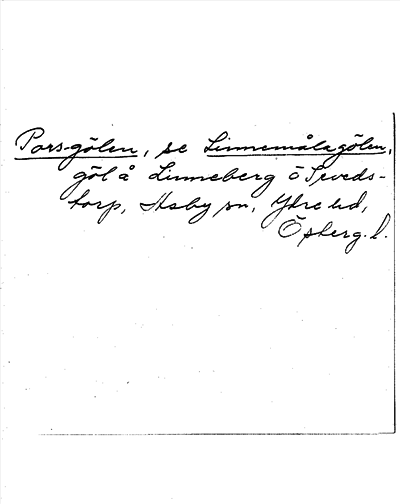 Pors-gölen, se Linnemåla gölen,
göl å Linneberg ö Sveds-
torp, Asby sn, Ydre hd,
Österg. l.